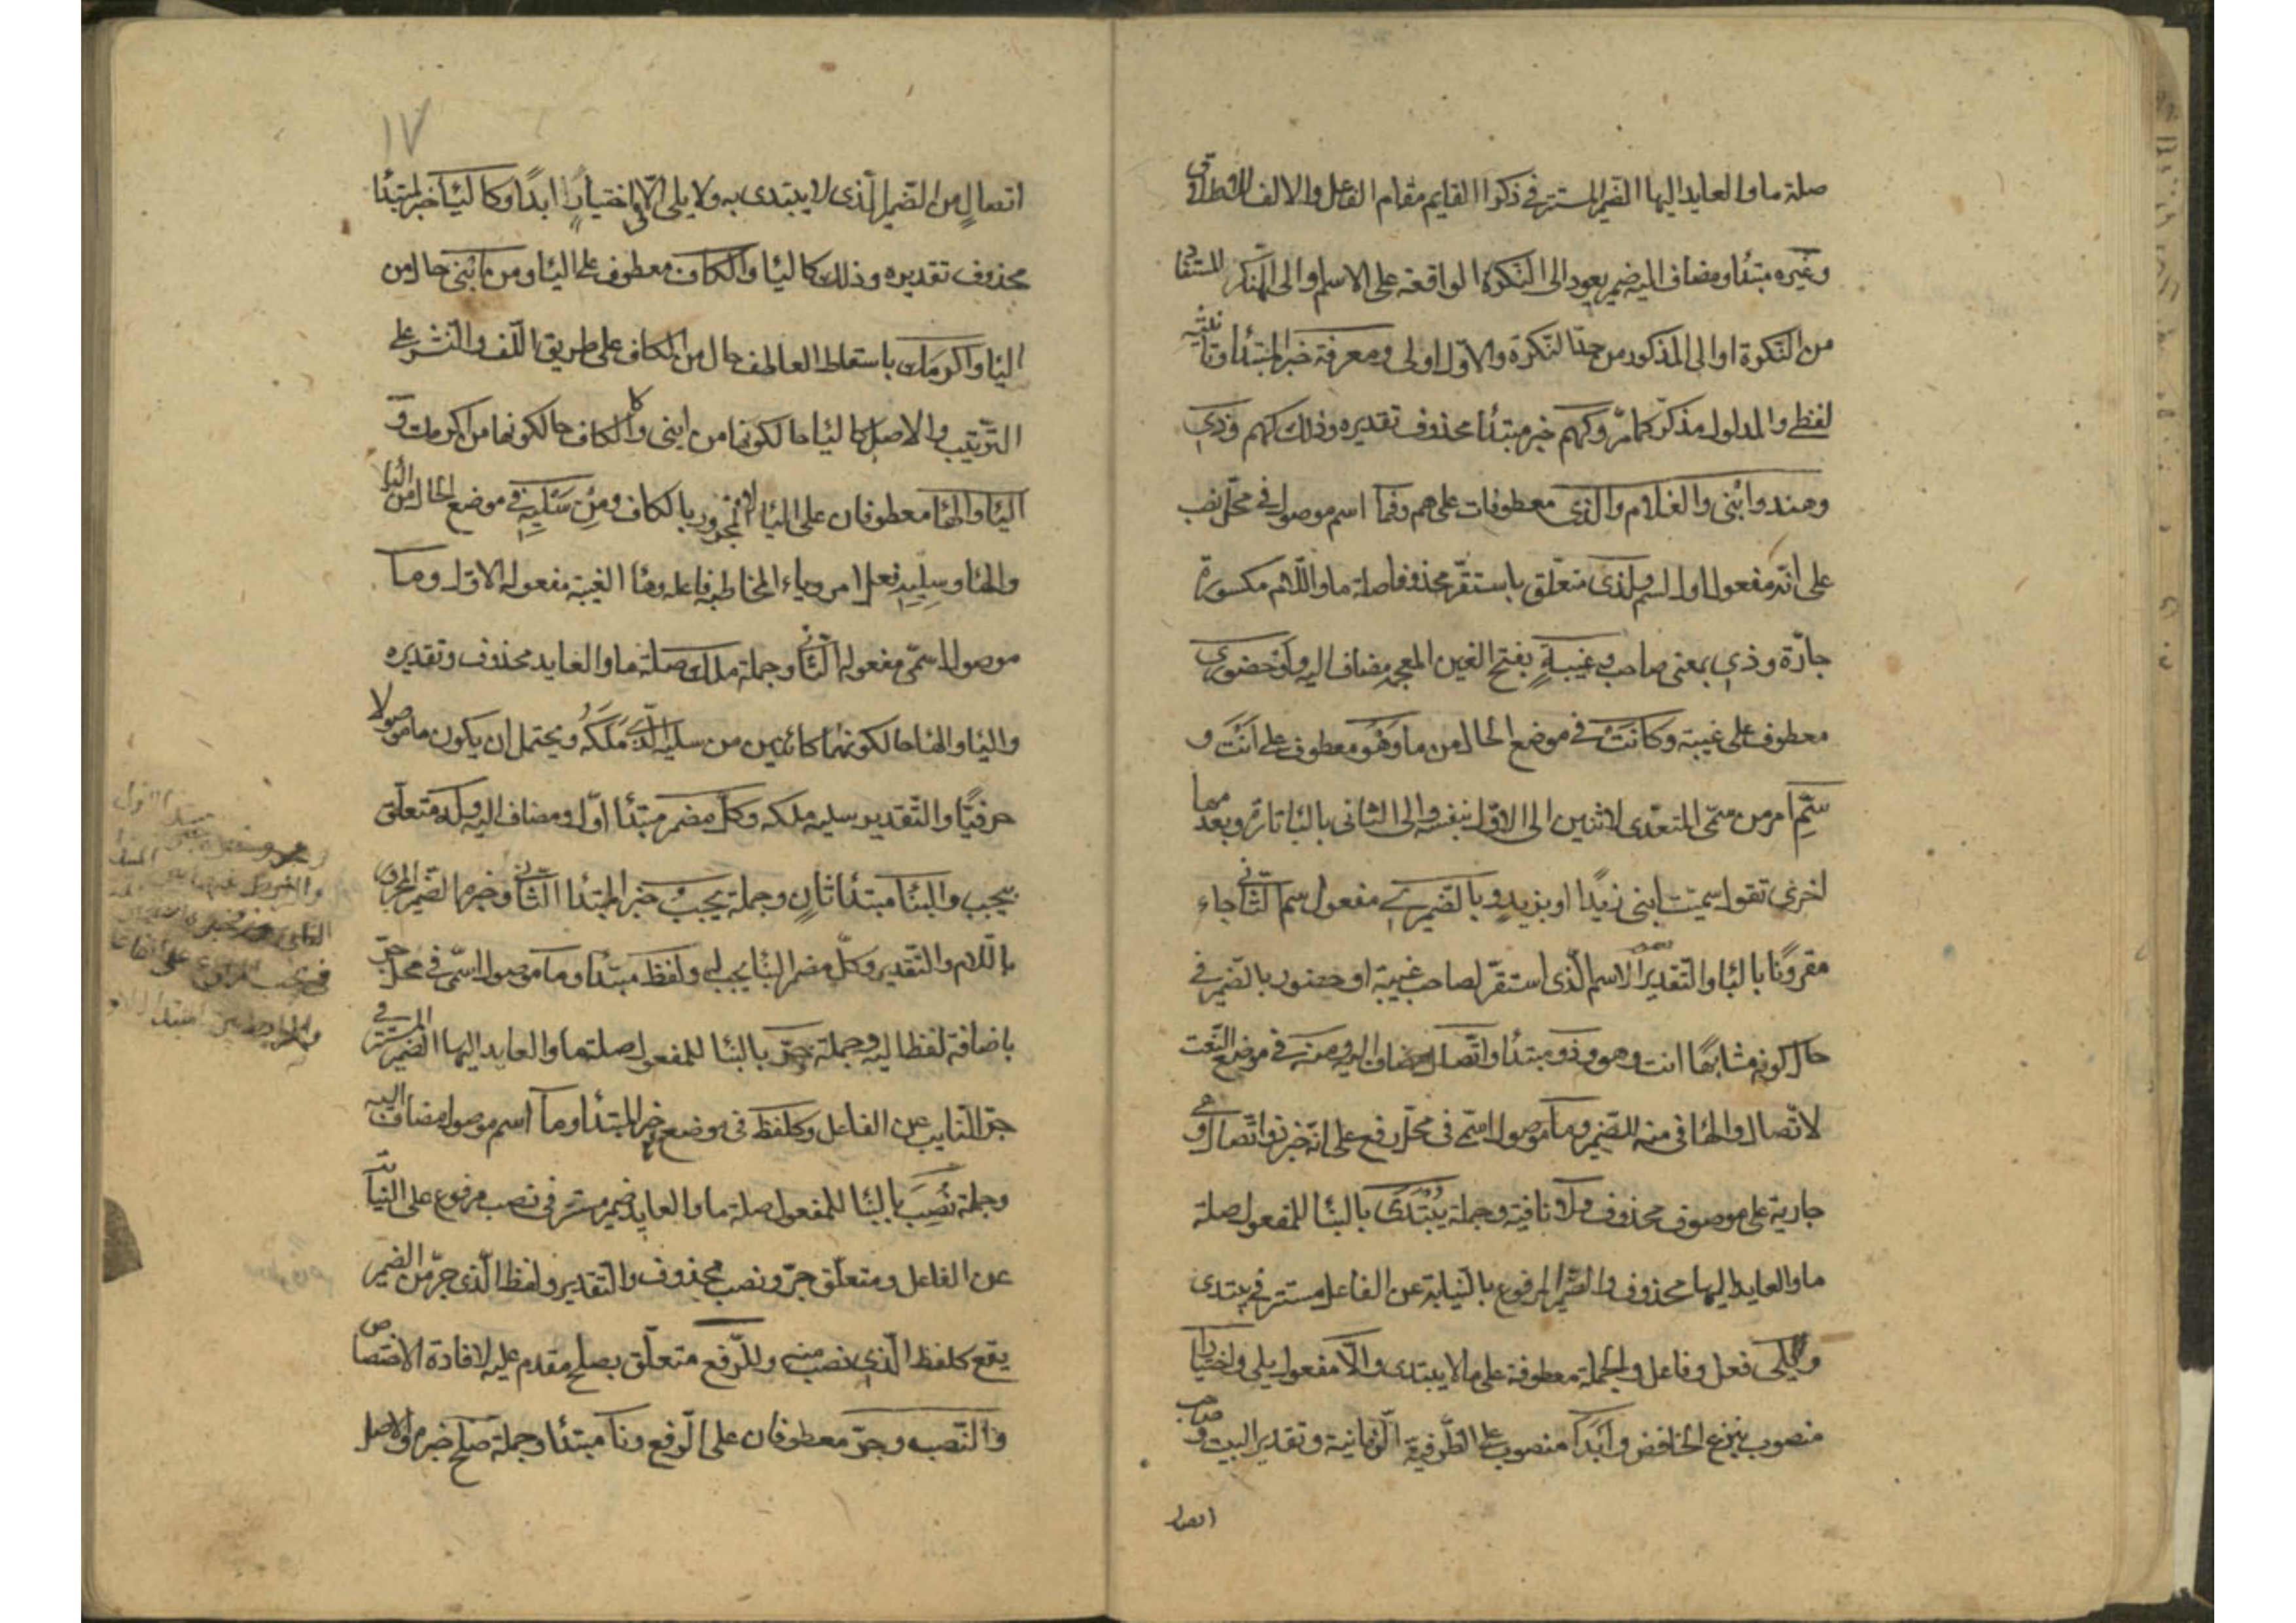 صلة ما والعايد اليها الضمير المستتر في ذكرا القايم مقام الفاعل والالف للاطلاق
وغيره مبتدأ ومضاف اليه ضمير يعود الى النكرة الواقعة على الاسم او الى المنكر المستفاد
من النكرة او الى المذكور من حد النكرة والاول اولى ومعرفة خبر المبتدأ وتانيثه
لفظي والمدلول مذكر كما مرّ وكهم خبر مبتدأ محذوف تقديره وذلك كهم وذي
وهند وابني والغلام والذي معطوفات على هم وفما اسم موصول في محل نصب
على انه مفعول اول لسم ولذي متعلق باستقر محذوفا صلة ما واللام مكسورة
جارّة وذي بمعنى صاحب وغيبةٍ بفتح الغين المعجمة مضاف اليه واو حضورٍ
معطوف على غيبة وكانت في موضع الحال من ما وهُو معطوف على انت و
سمّ امر من سمّى المتعدى لاثنين الى الاول بنفسه والى الثانى بالباء تارة وبعدمها
اخرى تقول سميت ابنى زيدًا او بزيدٍ وبالضمير مفعول سم الثانى جاء
مقرونًا بالباء والتقدير الاسم الّذى استقرّ لصاحب غيبة او حضور بالضمير في
حال كونه مشابهًا انت وهو وذو مبتدأ واتصال مضاف اليه ومنه في موضع النعت
لاتّصال والهاء في منه للضمير وما موصول اسمي في محلّ رفع على انّه خبر ذو اتصال او
جارية على موصوف محذوف ولا نافية وجملة يُبْتَدَى بالبناء للمفعول صلة
ما والعايد اليها محذوف والضمير المرفوع بالنيابة عن الفاعل مستتر في يبتدى
ويلى فعل وفاعل والجملة معطوفة على ما لا يبتدى والّا مفعول يلى واختيارا
منصوب بنزع الخافض وابدًا منصوب على الظرفية الزمانية وتقدير البيت وصاحب
اتصال
١٧
اتصالٍ من الضمير الّذى لا يبتدى به ولا يلى الّا في اختيارٍ ابدًا وكاليا خبر لمبتدأ
محذوف تقديره وذلك كاليا والكاف معطوف على اليا ومن ابني حال من
اليا واكرمك باسقاط العاطف حال من الكاف على طريق اللّف والنّشر على
الترتيب والاصل كاليا حالكونها من ابنى والكاف حالكونها من اكرمك و
الياء والها معطوفان على اليا المجرور بالكاف ومن سَليهِ في موضع الحال من اليا
والها وسليهِ فعل امر وياء المخاطبة فاعله وها الغيبة مفعوله الاول وما
موصول اسمّى مفعوله الثانى وجملة ملك صلة ما والعايد محذوف وتقديره
واليا والها حالكونهما كائنين من سليه الذي مَلَكَهُ ويحتمل ان يكون ما موصولا
حرفيًّا والتّقدير سليه ملكه وكلّ مضمر مبتدأ اوّل ومضاف اليه وله متعلق
بيجب والبنا مبتدأ ثانٍ وجملة يجب خبر المبتدا الثانى وخبره الضمير المجرور
باللام والتّقدير وكلّ مضمر البنا يجب له ولفظ مبتدأ وما موصول اسمّى في محل جرّ
باضافة لفظ اليه وجملة جرّ بالبنا للمفعول صلة ما والعايد اليها الضمير المستتر في
جرّ النايب عن الفاعل وكلفظ في موضع خبر المبتدأ وما اسم موصول مضاف اليه
وجملة نُصِبَ بالبنا للمفعول صلة ما والعايد ضمير مستتر في نصب مرفوع على النيابة
عن الفاعل ومتعلّق جرّ ونصب محذوف والتّقدير ولفظ الّذى جرّ من الضمير
يقع كلفظ الّذي نصب منه وللرّفع متعلّق بصلح مقدم عليه لافادة الاختصاص
والنّصب وجرّ معطوفان على الرّفع ونا مبتدأ وجملة صلح خبره والاصل